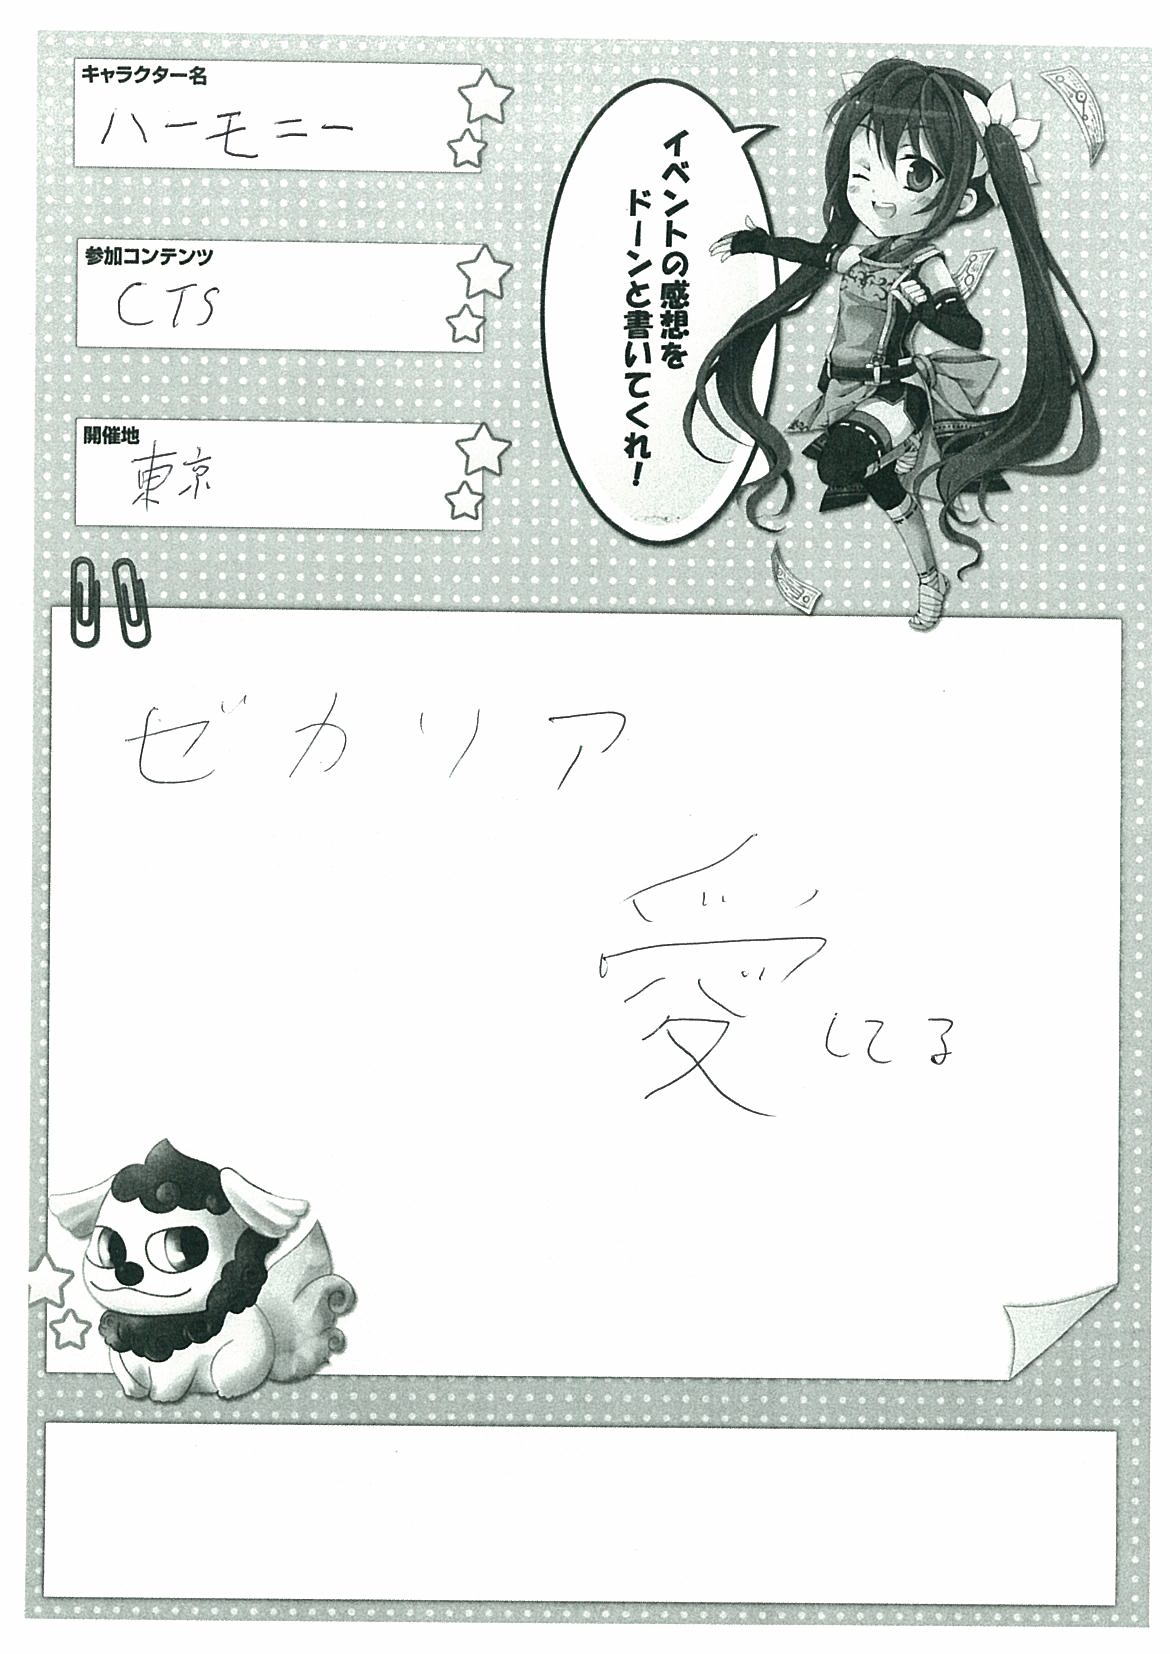 キャラクター名
ハーモニー
参加コンテンツ
CTS
開催地
東京
イベントの感想を
ドーンと書いてくれ！
ゼカリア
愛してる